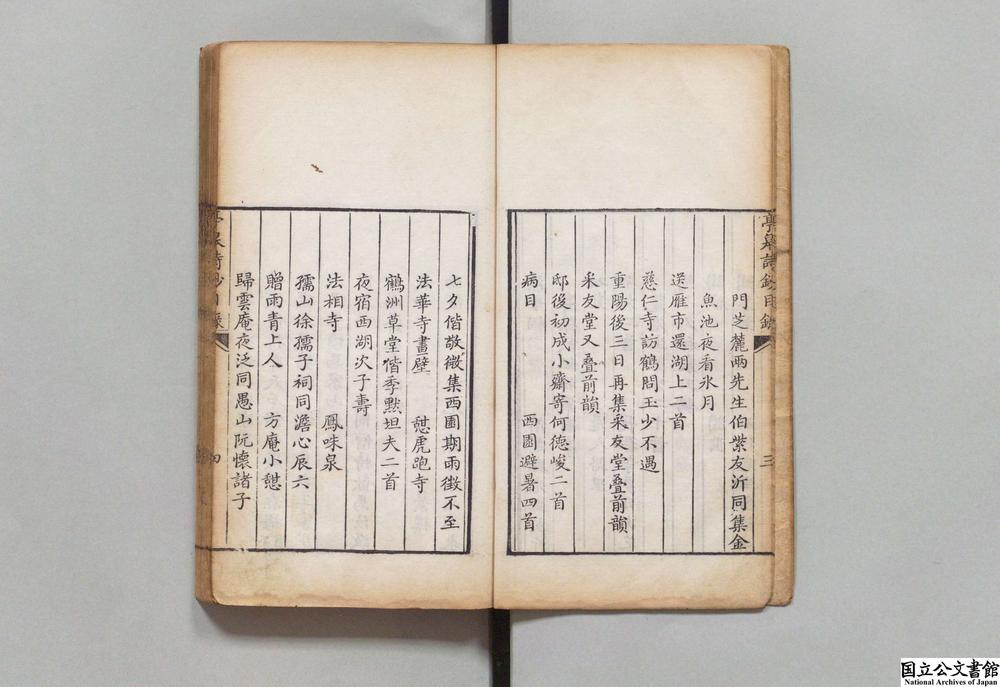 亭皋詩鈔目錄
三
門芝麓兩先生伯紫友沂同集金
魚池夜看氷月
送雁市還湖上二首
慈仁寺訪鶴問玉少不遇
重陽後三日再集采友堂叠前韻
采友堂又叠前韻
邸後初成小齋寄何德峻二首
病目 西園避暑四首
七夕偕敬微集西園期雨徵不至
法華寺畫壁 憇虎跑寺
鶴洲草堂偕季默坦夫二首
夜宿西湖次子壽
法相寺 鳳咮泉
孺山徐孺子祠同澹心辰六
贈雨青上人 方庵小憇
歸雲庵夜泛同愚山阮懷諸子
亭皋詩鈔目錄
四
国立公文書館
National Archives of Japan